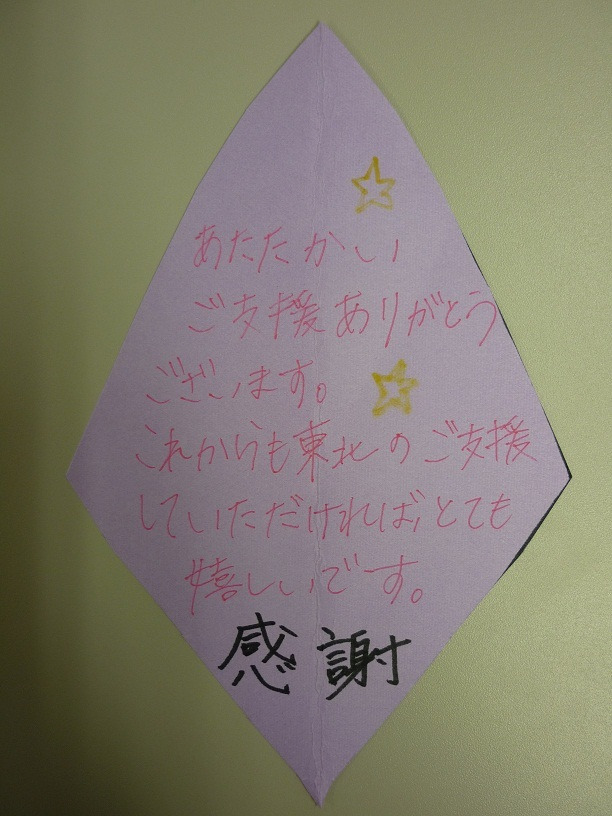 あたたかい
ご支援ありがとう
ございます。
これからも東北のご支援
していただければ、とても
嬉しいです。
感謝